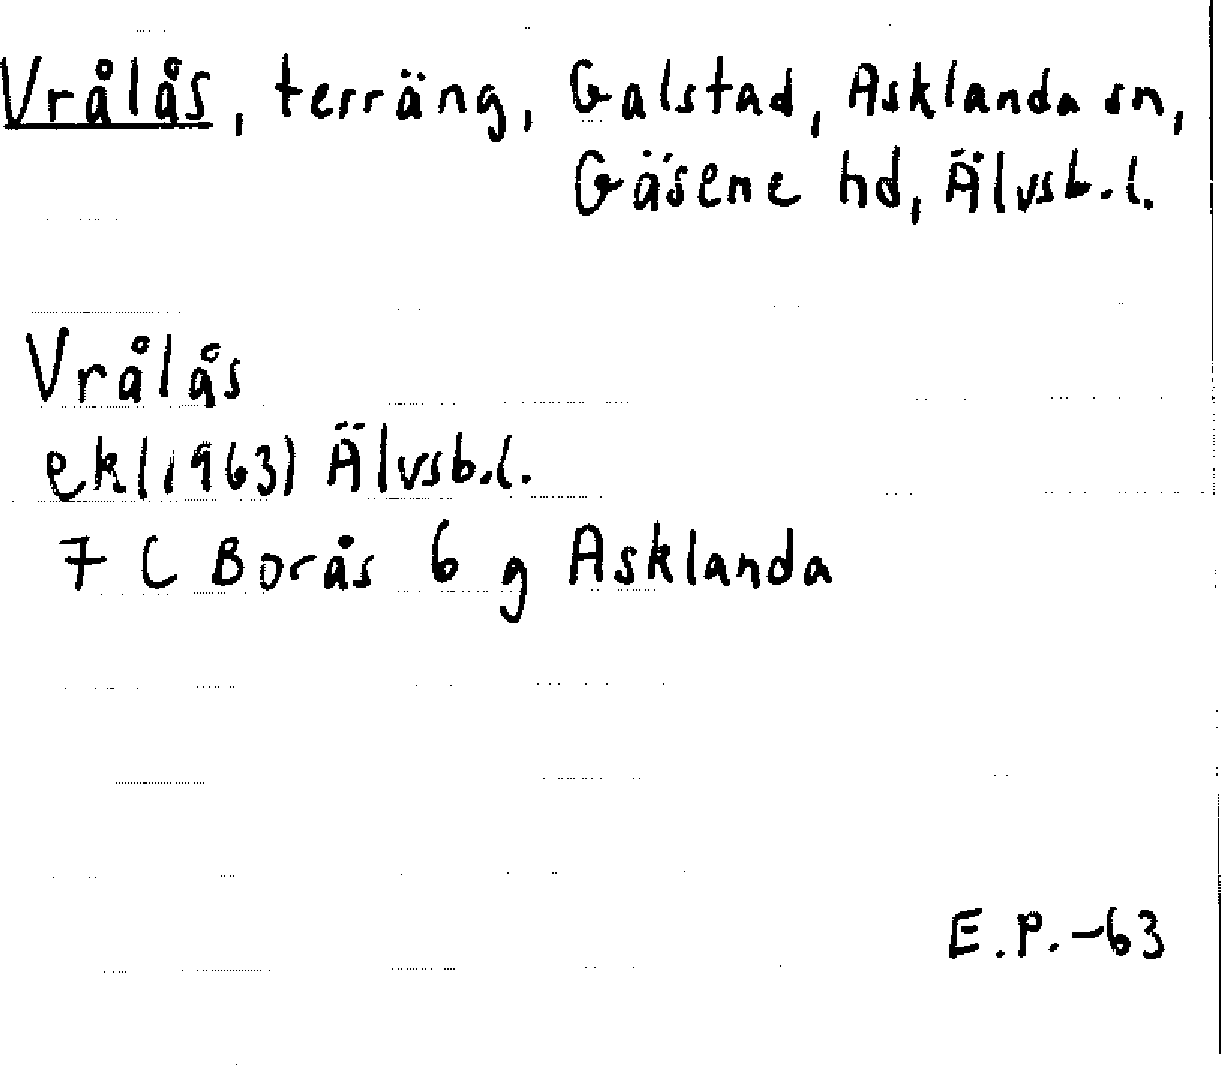 Vrålås, terräng, Galstad, Asklanda sn,
Gäsene hd, Älvsb.l.
Vrålås
ek(1963) Älvsb.l.
7 C Borås 6 g Asklanda
E.P.-63